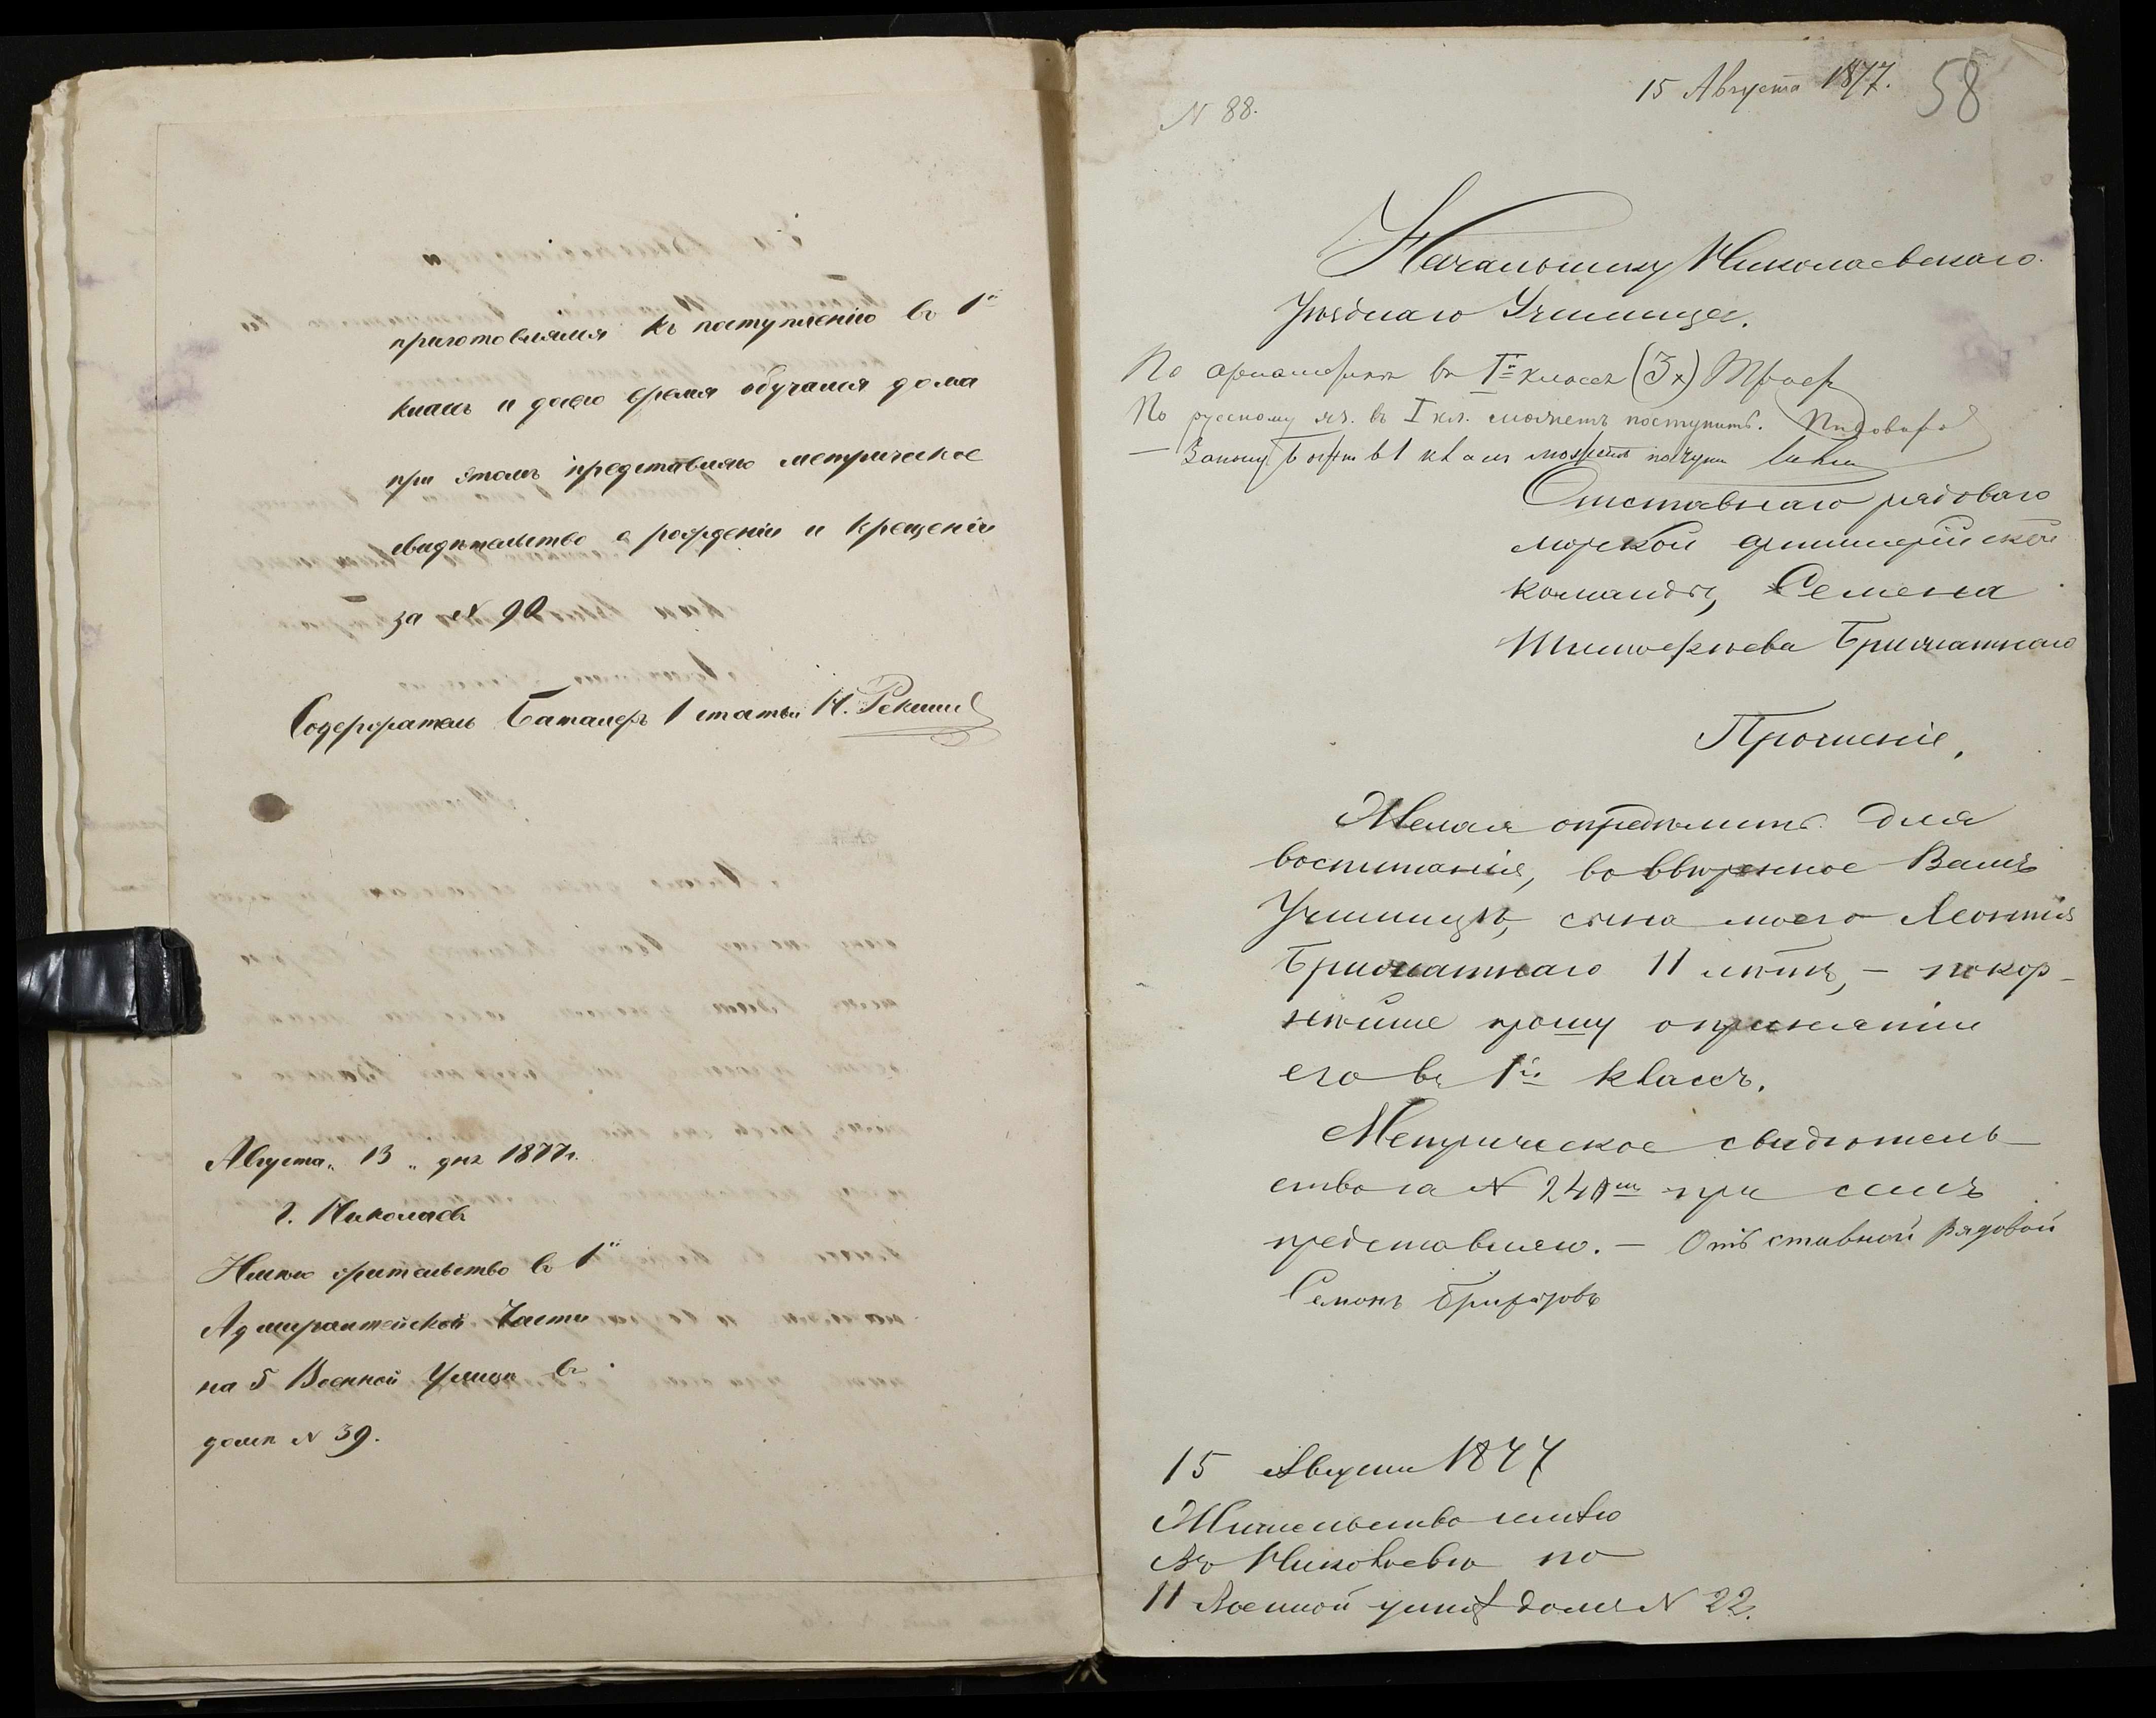 приготовлялся къ поступленію въ 1й
классъ и до сего время обучался дома
при этомъ представляю метрическое
свидѣтельство о рожденіи и крещеніи
за № 90
Содержатель Баталеръ 1 статьи Н.
Августа „ 13 „ дня 1877 г.
г. Николаевъ
Имѣю жительство въ 1й
Адмиралтейской Части
на 5 Военной Улицѣ въ
домѣ № 39.
15 Августа 1877. 58
N 88.
Начальнику Николаевскаго
Уѣзднаго Училища.
По ариѳметикѣ въ Iй классъ (3х)
По русскому яз. въ I кл. можетъ поступить.
— Закону Б въ 1 классъ можетъ
Отставнаго рядоваго
морской артиллерійской
команды, Семена
Тимофѣева
Прошеніе,
Желая опредѣлить для
воспитанія, во ввѣренное Вамъ
Училищѣ, сына моего Леонтія
11 лѣтъ, — покор-
нѣйше прошу о принятіи
его въ 1й классъ.
Метрическое свидѣтель-
ство за № при семъ
представляю. — Отъставной рядовой
Семенъ
15 Августа 1877
Жительство имѣю
Въ Николаевѣ по
11 Военной улицѣ домъ N 22.